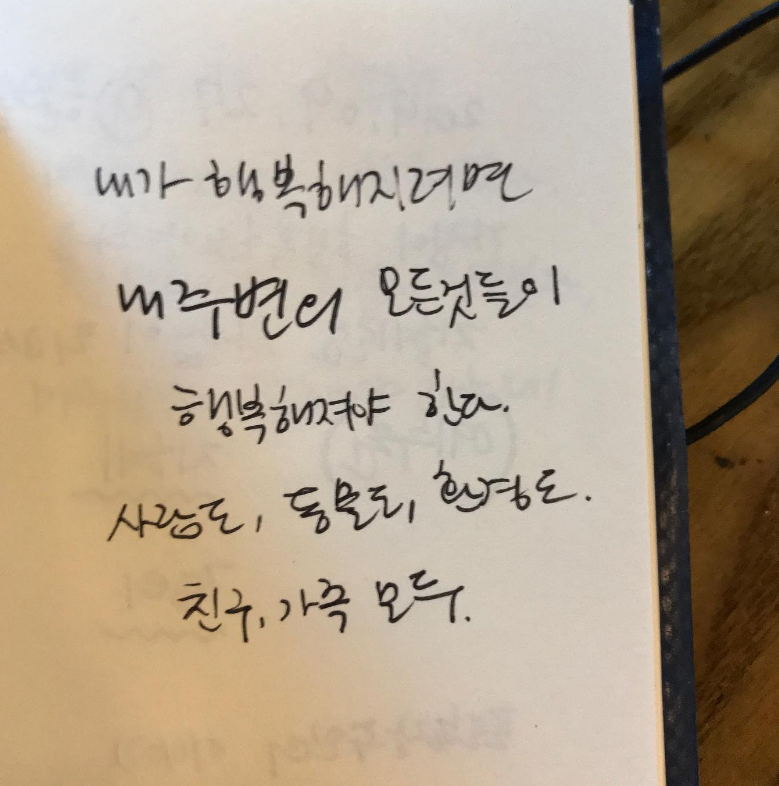 내가 행복해지려면
내주변의 모든것들이
행복해져야 한다.
사람도, 동물도, 환경도.
친구, 가족 모두.